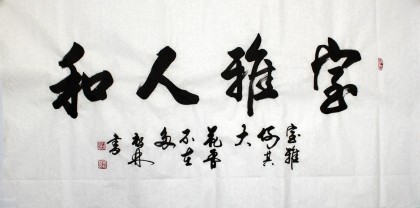 室雅人和
室雅
何其
大
花香
不在
多
松林
書